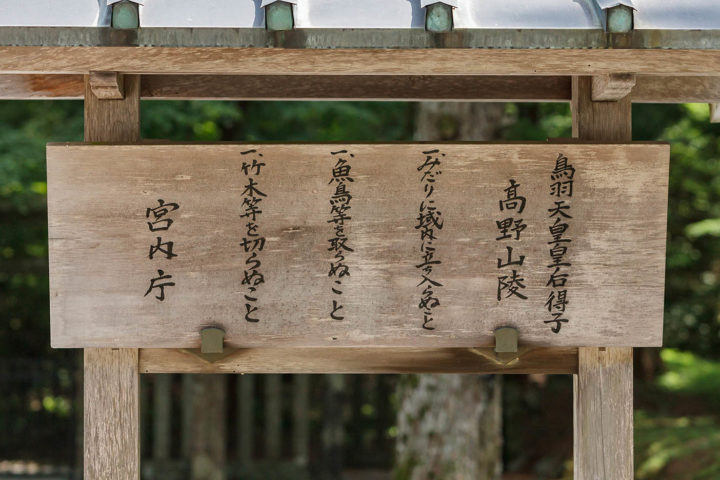 鳥羽天皇皇后得子
高野山陵
一、みだりに域内に立ち入らぬこと
一、魚鳥等を取らぬこと
一、竹木等を切らぬこと
宮内庁